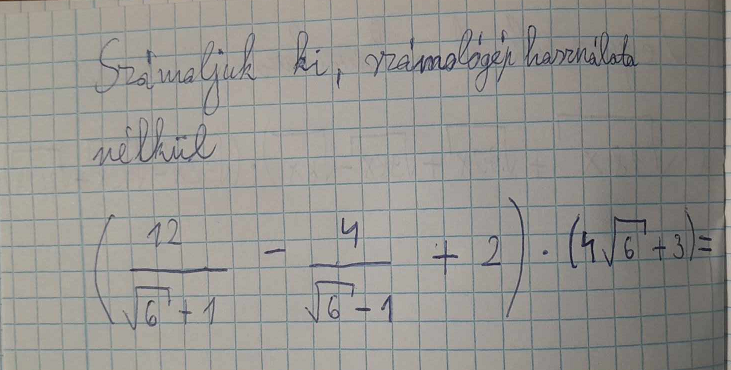 Számaljuk ki, számológép használata
nélkül
(12/(√6 + 1) - 4/(√6 - 1) + 2) · (4√6 + 3) =